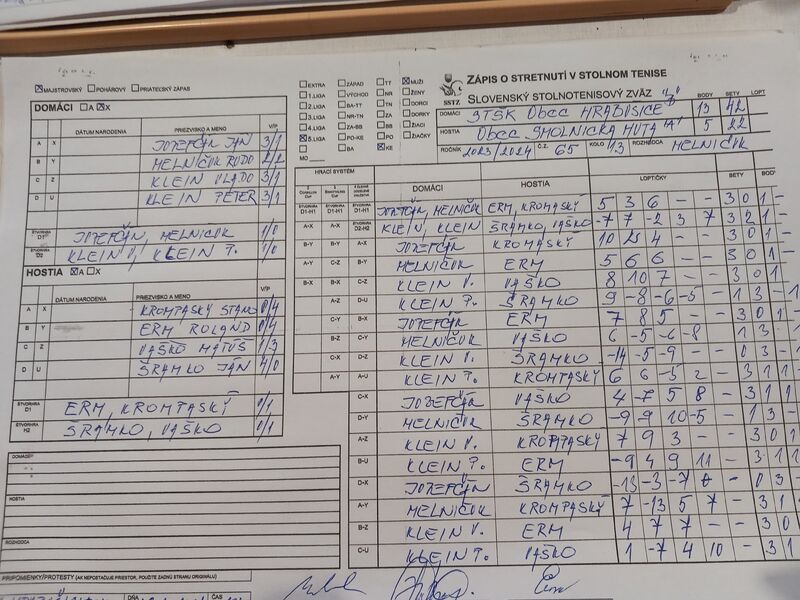 MAJSTROVSKÝ POHÁROVÝ PRIATEĽSKÝ ZÁPAS
DOMÁCI A X
DÁTUM NARODENIA PRIEZVISKO A MENO V/P
A X JOZEFČJÁN JÁN 3/1
B Y MELNIČUK RUDO 2/2
C Z KLEIN VLADO 3/1
D U KLEIN PETER 3/1
ŠTVORHRA D1 JOZEFČJÁN, MELNIČUK 1/0
ŠTVORHRA D2 KLEIN V, KLEIN P. 1/0
HOSTIA A X
DÁTUM NARODENIA PRIEZVISKO A MENO V/P
A X KROMPASKÝ STANO 0/4
B Y ERM ROLAND 0/4
C Z VAŠKO MATÚŠ 1/3
D U ŠRAMKO JÁN 4/0
ŠTVORHRA D1 ERM, KROMPASKÝ 0/1
ŠTVORHRA H2 ŠRAMKO, VAŠKO 0/1
DOMÁCI
HOSTIA
ROZHODCA
PRIPOMIENKY/PROTESTY (AK NEPOSTAČUJE PRIESTOR, POUŽITE ZADNÚ STRANU ORIGINÁLU)
EXTRA ZÁPAD TT MUŽI
1.LIGA VÝCHOD NR ŽENY
2.LIGA BA-TT TN DORCI
3.LIGA NR-TN ZA DORKY
4.LIGA ZA-BB BB ŽIACI
5.LIGA PO-KE PO ŽIAČKY
BA KE
MO
SSTZ
ZÁPIS O STRETNUTÍ V STOLNOM TENISE
SLOVENSKÝ STOLNOTENISOVÝ ZVÄZ BODY SETY LOPT
DOMÁCI STŠK Obec HRABUŠICE "B" 13 42
HOSTIA Obec SMOLNÍCKA HUTA "A" 5 22
ROČNÍK 2023/2024 Č.Z. 65 KOLO 13 ROZHODCA MELNIČUK
HRACÍ SYSTÉM DOMÁCI HOSTIA LOPTIČKY SETY BODY
D1-H1 D1-H1 D1-H1 JOZEFČJÁN, MELNIČUK ERM, KROMPASKÝ 5 3 6 - - 3 0 1 -
A-X A-X D2-H2 KLEIN, KLEIN ŠRAMKO, VAŠKO -7 7 -2 3 7 3 2 1 -
B-Y B-Y A-X JOZEFČJÁN KROMPASKÝ 10 4 - - 3 0 1 -
A-Y C-Z B-Y MELNIČUK ERM 5 6 6 - - 3 0 1 -
B-X B-X C-Z KLEIN V. VAŠKO 8 10 7 - - 3 0 1
A-Z D-U KLEIN P. ŠRAMKO 9 -8 -6 -5 - 1 3 - 1
C-Y B-X JOZEFČJÁN ERM 7 8 5 - - 3 0 1 -
B-Z C-Y MELNIČUK VAŠKO 6 -5 -6 -8 1 3 - 1
C-X D-Z KLEIN V. ŠRAMKO -14 -5 -9 - - 0 3 - 1
A-Y A-U KLEIN P. KROMPASKÝ 6 6 -5 2 - 3 1 1
C-X JOZEFČJÁN VAŠKO 4 -7 5 8 - 3 1 1
D-Y MELNIČUK ŠRAMKO -9 9 -10 -5 - 1 3 -
A-Z KLEIN V. KROMPASKÝ 7 9 3 - - 3 0 1
B-U KLEIN P. ERM -9 4 9 11 - 3 1 1
D-X JOZEFČJÁN ŠRAMKO -13 -3 -7 - 0 3 -
A-Y MELNIČUK KROMPASKÝ 7 -13 5 7 - 3 1
B-Z KLEIN V. ERM 4 7 7 - - 3 0
C-U KLEIN P. VAŠKO 1 -7 4 10 - 3 1